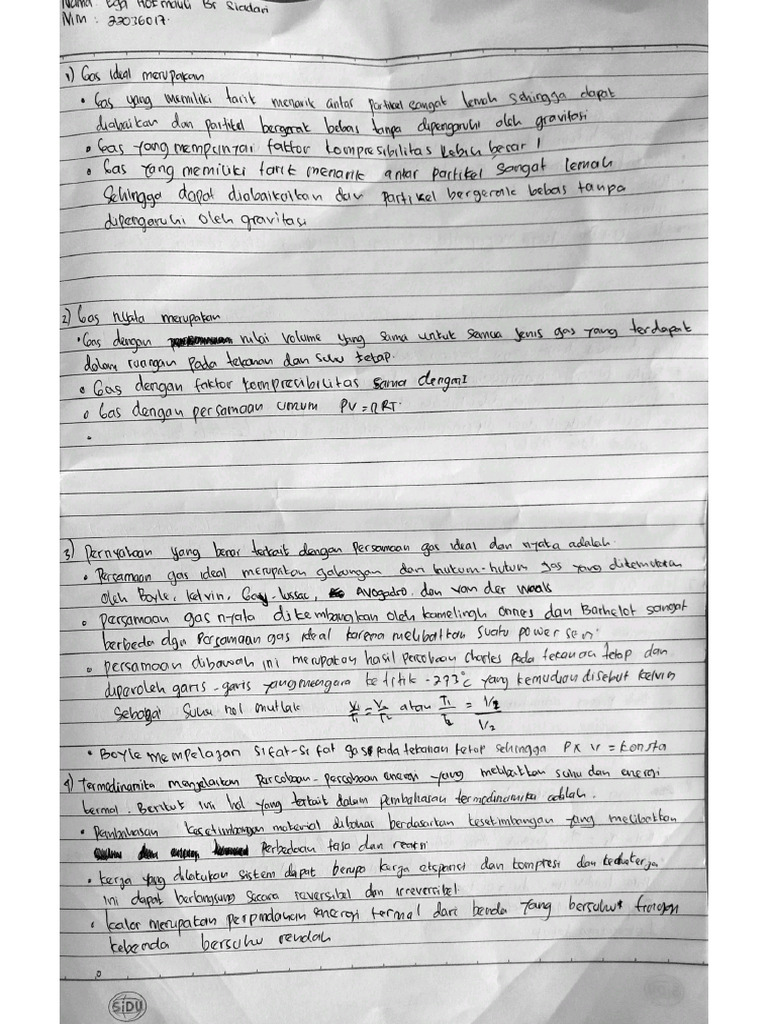 Nama: Ega Hotmauli Br Siadari
NIM : 22036017.
1) Gas ideal merupakan
• Gas yang memiliki tarik menarik antar partikel sangat lemah sehingga dapat
diabaikan dan partikel bergerak bebas tanpa dipengaruhi oleh gravitasi
• Gas yang mempunyai faktor kompresibilitas lebih besar 1
• Gas yang memiliki tarik menarik antar partikel sangat lemah
Sehingga dapat diabaikaikan dan partikel bergerak bebas tanpa
dipengaruhi oleh gravitasi
2) Gas nyata merupakan
• Gas dengan nilai volume yang sama untuk semua jenis gas yang terdapat
dalam ruangan pada tekanan dan suhu tetap.
• Gas dengan faktor kompresibilitas sama dengan 1
• Gas dengan persamaan umum PV = nRT.
•
3) Pernyataan yang benar terkait dengan persamaan gas ideal dan nyata adalah.
• Persamaan gas ideal merupakan gabungan dari hukum-hukum gas yang ditemukan
oleh Boyle, kelvin, Gay-lussac, Avogadro, dan van der waals
• persamaan gas nyata dikembangkan oleh kamelingh onnes dan Barhelot sangat
berbeda dgn Persamaan gas ideal karena melibatkan suatu power seri.
• persamaan dibawah ini merupakan hasil percobaan Charles pada tekanan tetap dan
diperoleh garis-garis yang mengara ke titik -273°c yang kemudian disebut kelvin
Sebagai suhu nol mutlak V1/T1 = V2/T2 atau T1/T2 = 1/2 / 1/2
• Boyle mempelajari sifat-sifat gas pada tekanan tetap sehingga P x V = konsta
4) Termodinamika menjelaskan Percobaan-percobaan energi yang melibatkan suhu dan energi
termal. Berikut ini hal yang terkait dalam pembahasan termodinamika adalah.
• Pembahasan kesetimbangan material dibahas berdasarkan kesetimbangan yang melibatkan
Perbedaan fasa dan reaksi
• kerja yang dilakukan sistem dapat berupa kerja ekspansi dan kompresi dan kedua kerja
ini dapat berlangsung secara reversibel dan irreversibel.
• kalor merupakan perpindahan energi termal dari benda yang bersuhu
kebenda bersuhu rendah
SIDU